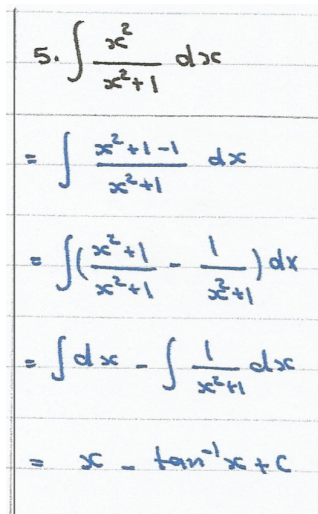 5. ∫ x²/(x²+1) dx
= ∫ (x²+1-1)/(x²+1) dx
= ∫( (x²+1)/(x²+1) - 1/(x²+1) ) dx
= ∫ dx - ∫ 1/(x²+1) dx
= x - tan⁻¹x + C